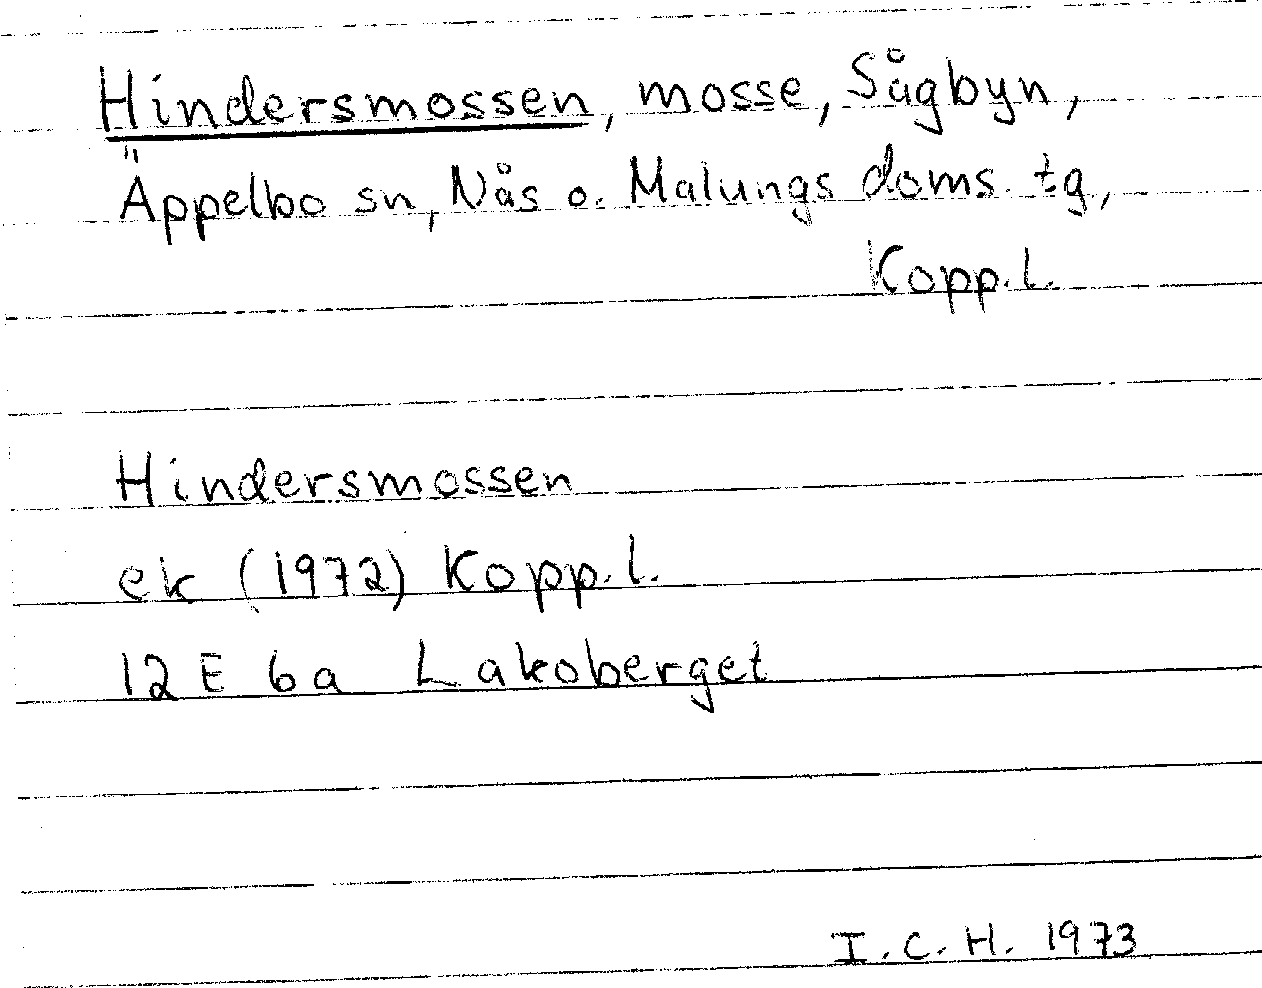 Hindersmossen, mosse, Sågbyn,
Äppelbo sn, Nås o. Malungs doms. tg,
Kopp. l.
Hindersmossen
ek (1972) Kopp. l.
12 E 6a Lakoberget
I. C. H. 1973